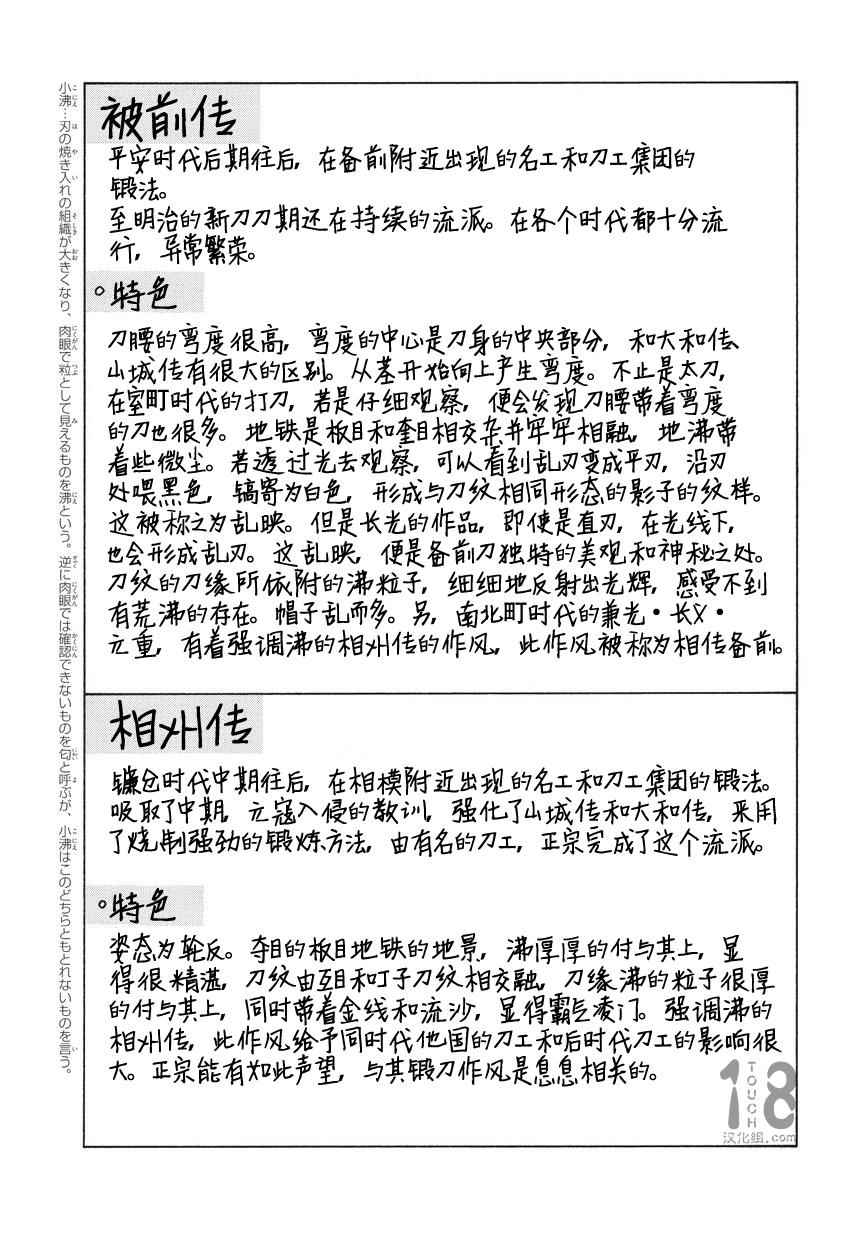 被前传
平安时代后期往后，在备前附近出现的名工和刀工集团的
锻法。
至明治的新刀刀期还在持续的流派。在各个时代都十分流
行，异常繁荣。
。特色
刀腰的弯度很高，弯度的中心是刀身的中央部分，和大和传、
山城传有很大的区别。从茎开始向上产生弯度。不止是太刀，
在室町时代的打刀，若是仔细观察，便会发现刀腰带着弯度
的刀也很多。地铁是板目和奎目相交杂并牢牢相融，地沸带
着些微尘。若透过光去观察，可以看到乱刃变成平刃，沿刃
处喂黑色，镐寄为白色，形成与刀纹相同形态的影子的纹样。
这被称之为乱映。但是长光的作品，即使是直刃，在光线下，
也会形成乱刃。这乱映，便是备前刀独特的美观和神秘之处。
刀纹的刀缘所依附的沸粒子，细细地反射出光辉，感受不到
有荒沸的存在。帽子乱而多。另，南北町时代的兼光·长义·
元重，有着强调沸的相州传的作风，此作风被称为相传备前。
相州传
镰仓时代中期往后，在相模附近出现的名工和刀工集团的锻法。
吸取了中期，元寇入侵的教训，强化了山城传和大和传，采用
了烧制强劲的锻炼方法，由有名的刀工，正宗完成了这个流派。
。特色
姿态为轮反。夺目的板目地铁的地景，沸厚厚的付与其上，显
得很精湛，刀纹由互目和丁子刀纹相交融，刀缘沸的粒子很厚
的付与其上，同时带着金线和流沙，显得霸气凌门。强调沸的
相州传，此作风给予同时代他国的刀工和后时代刀工的影响很
大。正宗能有如此声望，与其锻刀作风是息息相关的。
小沸…刃の焼き入れの組織が大きくなり、肉眼で粒として見えるものを沸という。逆に肉眼では確認できないものを匂と呼ぶが、小沸はこのどちらともとれないものを言う。
18
TOUCH
汉化组.com